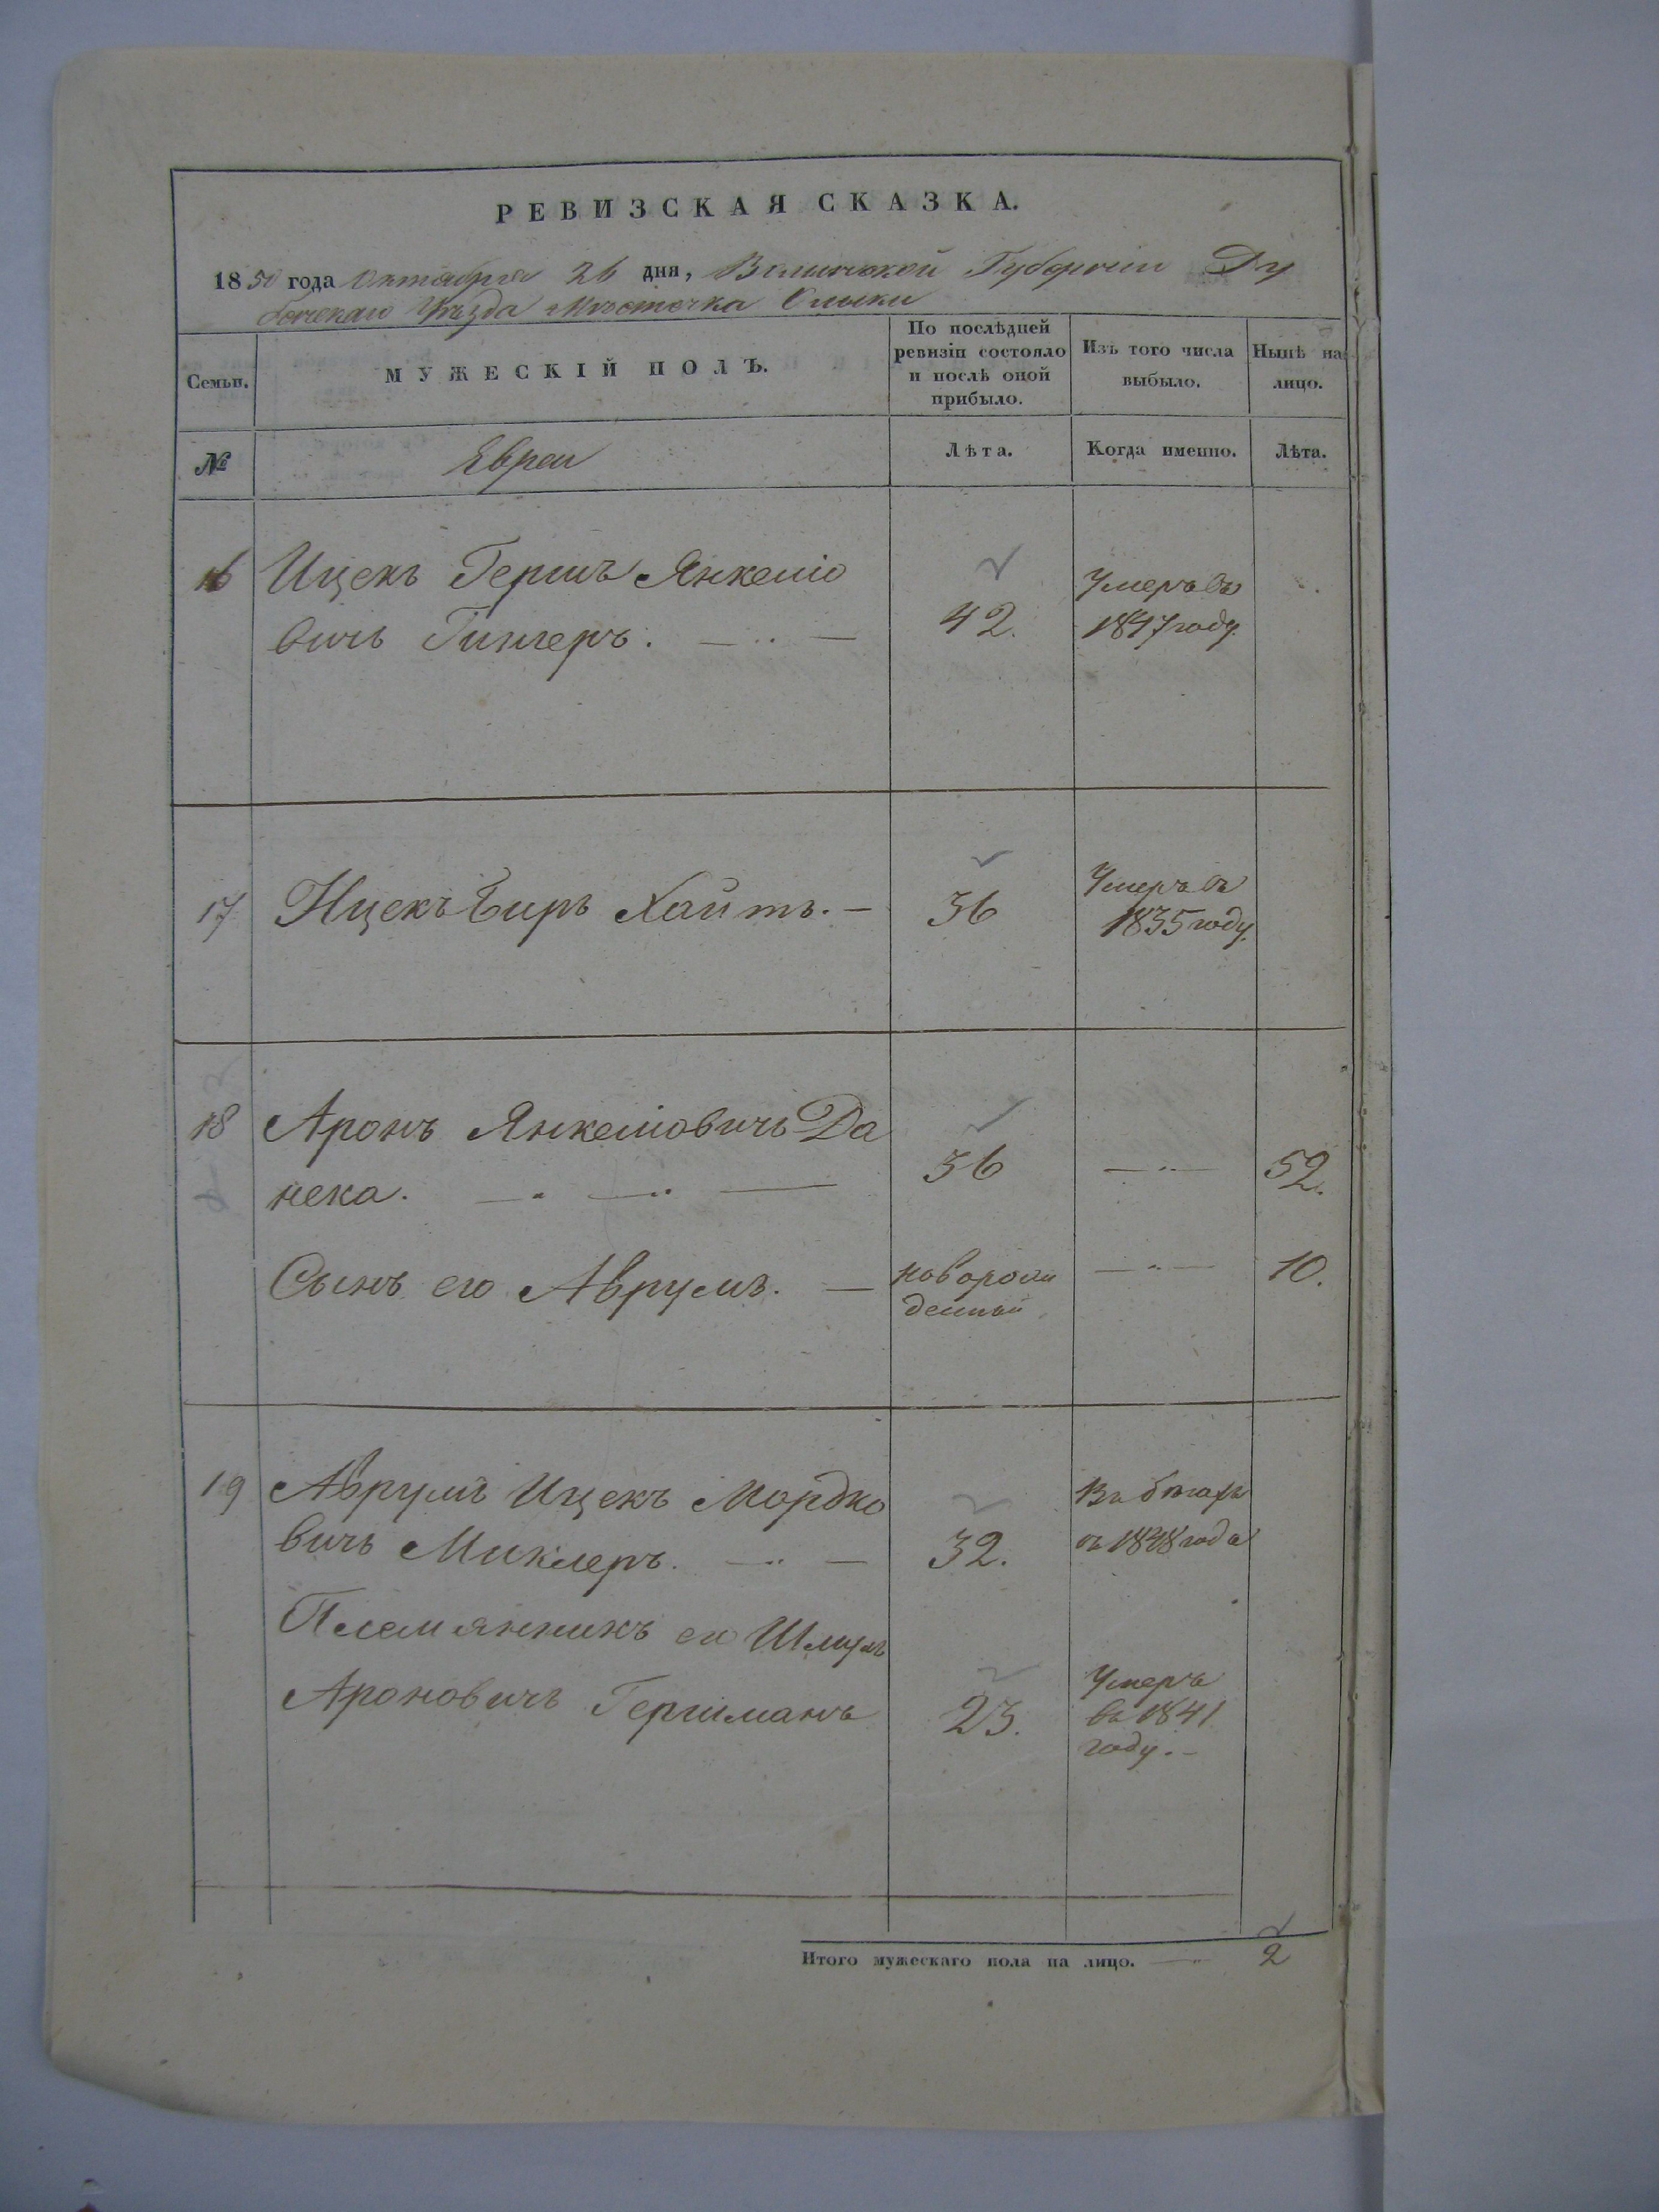 РЕВИЗСКАЯ СКАЗКА.
1850 года Октября 26 дня, Волынской Губернiи Ду
бенскаго Уѣзда Мѣстечка Олыки
Семьи.
МУЖЕСКІЙ ПОЛЪ.
По послѣдней ревизіи состояло и послѣ оной прибыло.
Изъ того числа выбыло.
Нынѣ на лицо.
№
Евреи
Лѣта.
Когда именно.
Лѣта.
16 Ицекъ Гершъ Янкеліо
вичь Гингеръ. 42. Умеръ въ 1847 году.
17 Ицекъ Беръ Хайтъ. 36 Умеръ въ 1835 году.
18 Аронъ Янкеліовичь Да
нека. 36 52.
Сынъ его Аврумъ. новорож
денный 10.
19 Аврумъ Ицекъ Мордко
вичь Миклеръ. 32. Въ бѣгахъ
съ 1848 года
Племянникъ его Шмуль
Ароновичь Гершманъ 23. Умеръ
въ 1841
году.
Итого мужескаго пола на лицо. 2